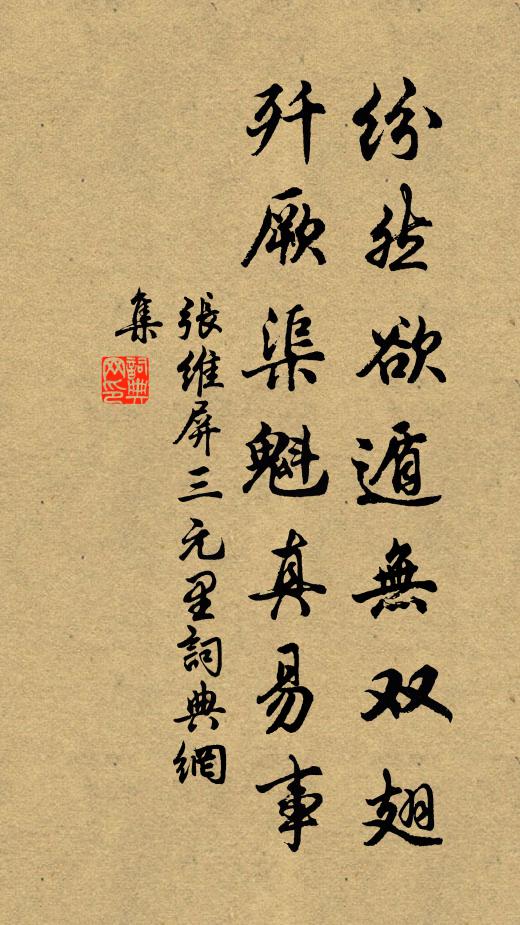 纷然欲遁無双翅
歼厥渠魁真易事
張維屏三元里詞典網
集
詞典
网印